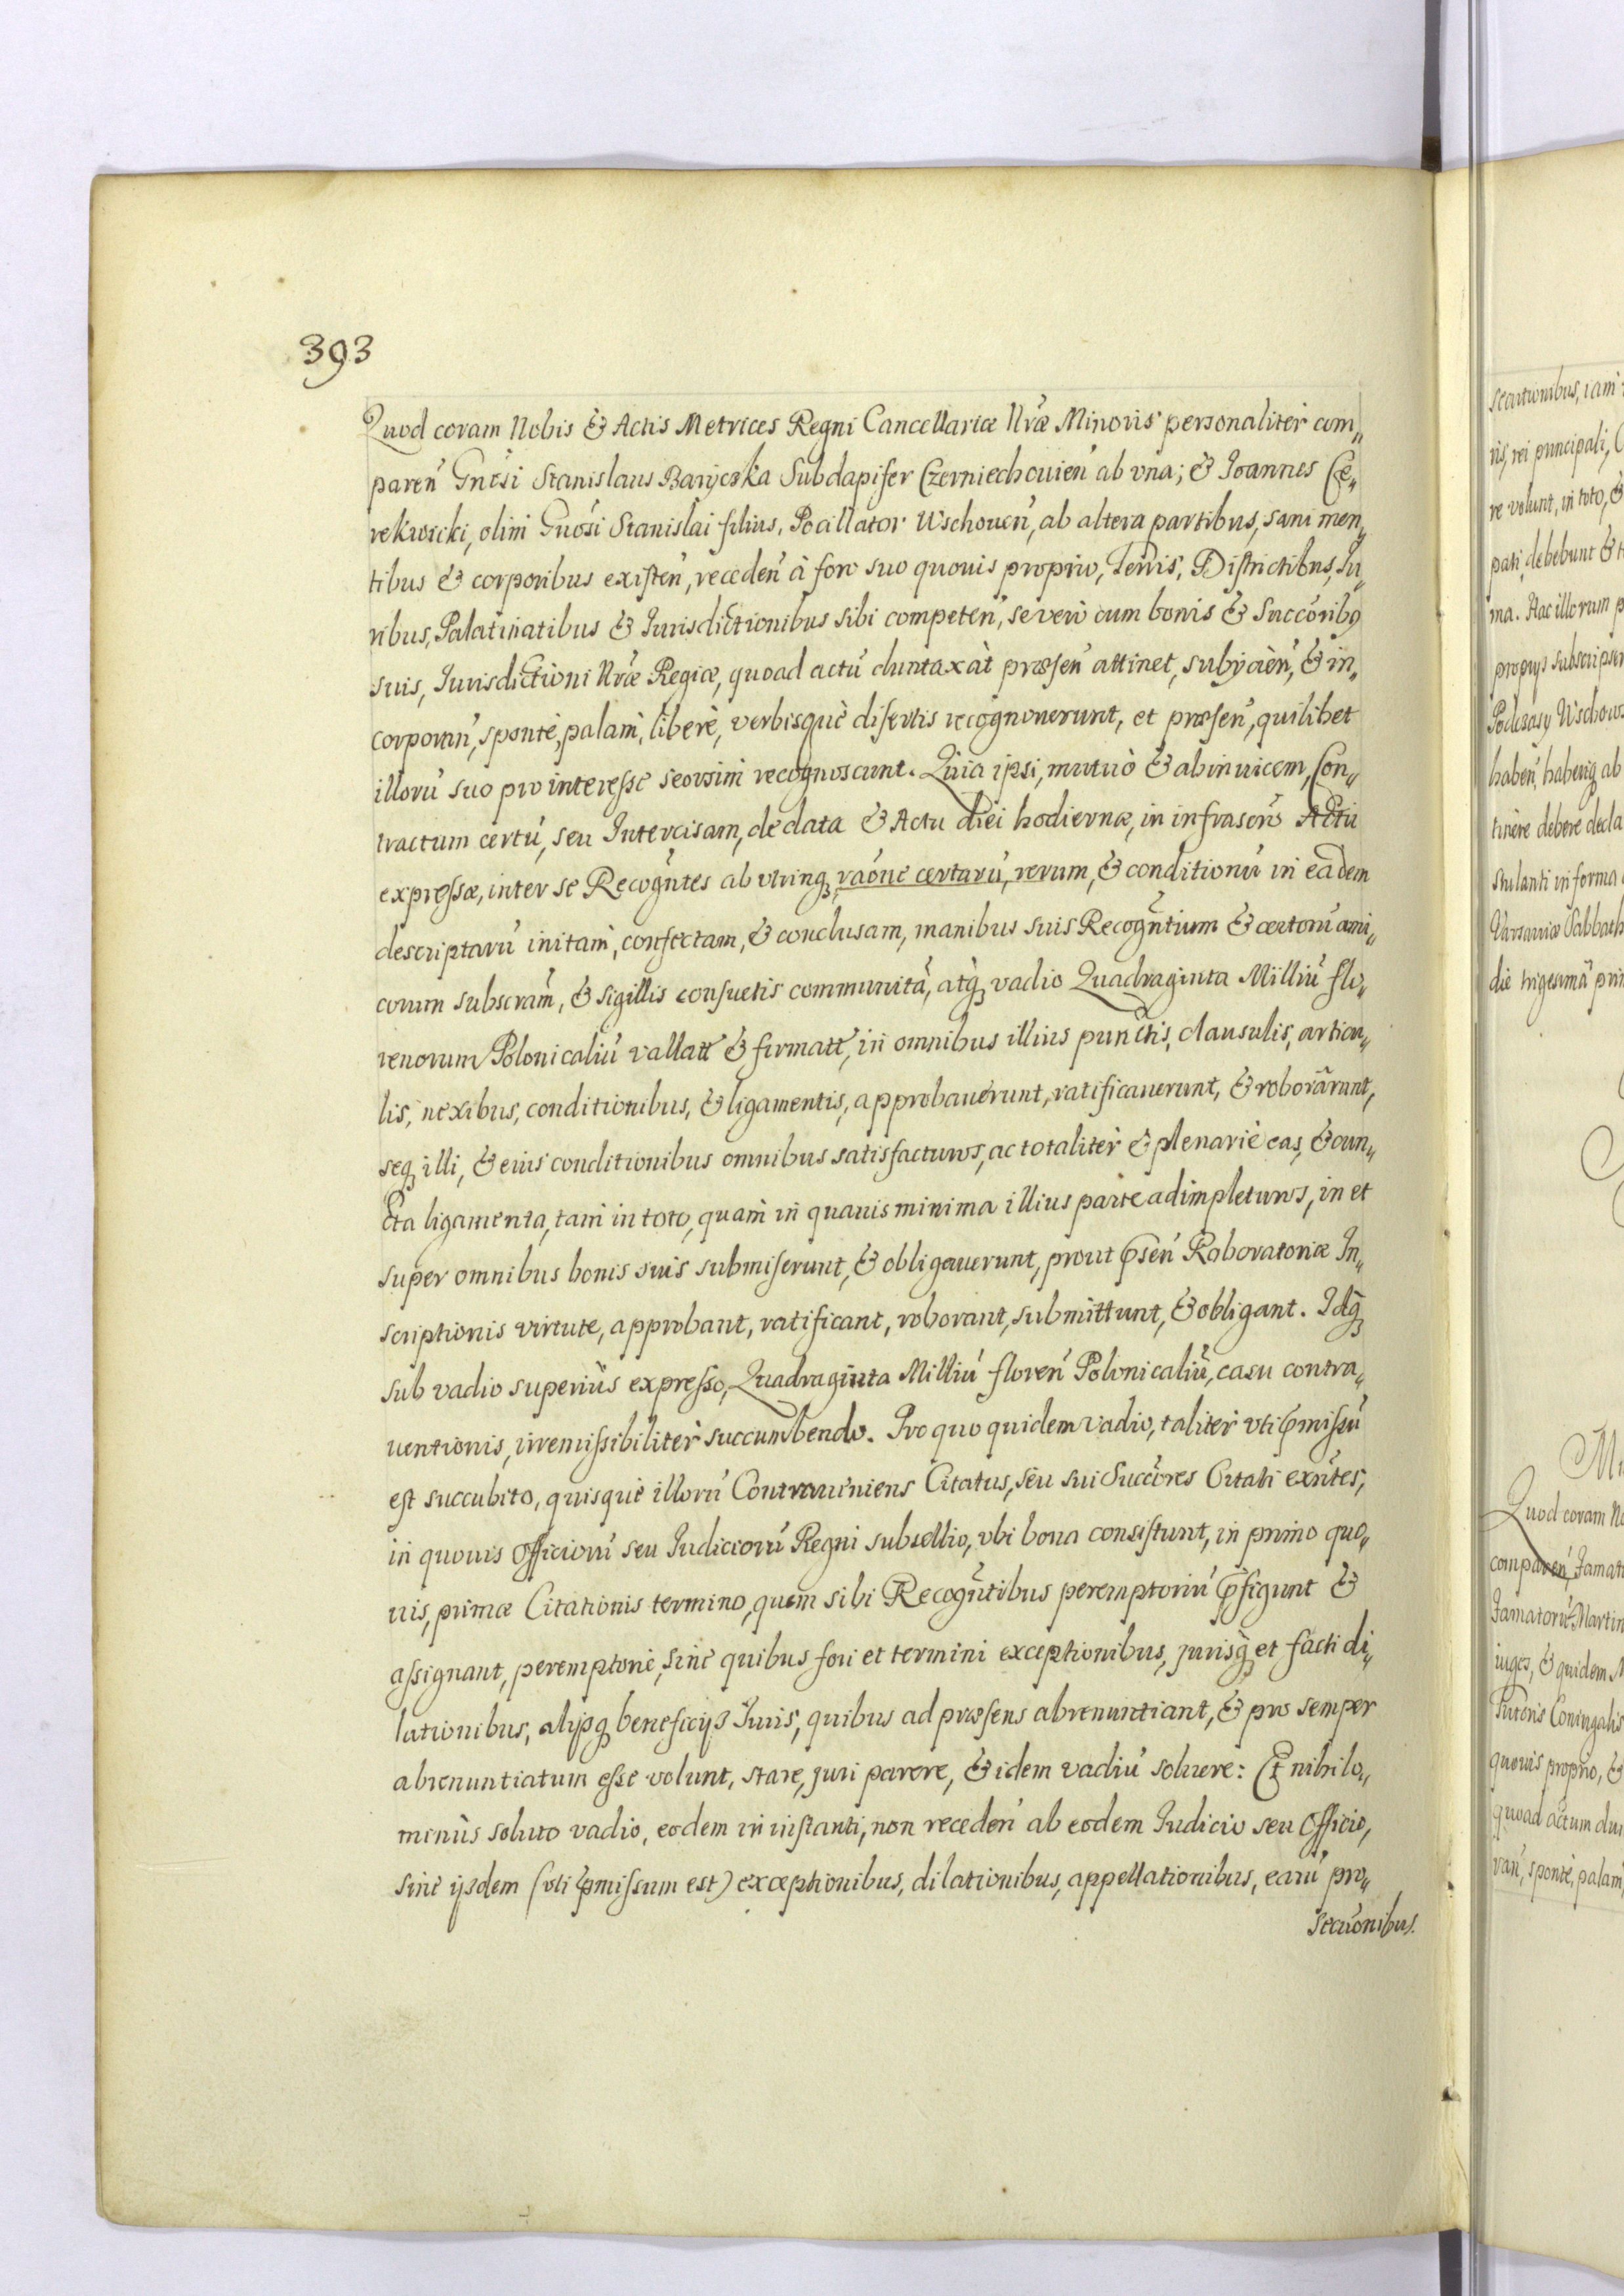 393
Quod coram Nobis & Actis Metrices Regni Cancellariæ Nr̃æ Minoris personaliter com„
paren̄ Gnẽsi Stanislaus Baryczka Subdapifer Czerniechouien̄ ab vna; & Joannes Ce„
rekwicki, olim Gnõsi Stanislai filius, Pocillator Wschouen̄, ab altera partibus, sani men„
tibus & corporibus existen̄, receden̄ à foro suo quouis proprio, Terris, Districtibus, Iu„
ribus, Palatinatibus & Iurisdictionibus sibi competen̄, se verò cum bonis & Succõribꝰ
suis, Iurisdictioni Nr̃æ Regiæ, quoad actū duntaxat præsen̄ attinet, subijcien̄, & in„
corporan̄, sponte, palam, liberè, verbisquè disertis recognouerunt, et præsen̄, quilibet
illorū suo pro interesse seorsim recognoscunt. Quia ipsi, mutuò & abinuicem, Con„
tractum certū, seu Intercisam, de data & Actu diei hodiernæ, in infrascr̃o Actu
expressæ, inter se Recogñtes ab vtrinq̨ rãone certarū, rerum, & conditionū in eadem
descriptarū initam, confectam, & conclusam, manibus suis Recogñtium & certorū ami„
corum subscr̃am, & sigillis consuetis communitã, atq̨ vadio Quadraginta Milliū flo„
renorum Polonicaliū vallatt̄ & firmatt̄, in omnibus illius punctis, clausulis, articu„
lis, nexibus, conditionibus, & ligamentis, approbauerunt, ratificauerunt, & roborârunt,
seq̨ illi, & eius conditionibus omnibus satisfacturos, ac totaliter & plenariè eas, & cun„
cta ligamenta, tam in toto, quàm in quauis minima illius parte adimpleturos, in et
super omnibus bonis suis submiserunt, & obligauerunt, prout p̃sen̄ Roboratoriæ In„
scriptionis virtute, approbant, ratificant, roborant, submittunt, & obligant. Idq̨
sub vadio superiùs expresso, Quadraginta Milliū floren̄ Polonicaliū, casu contra„
uentionis, irremissibiliter succumbendo. Pro quo quidem vadio, taliter vti p̃missū
est succubito, quisquè illorū Contraueniens Citatus, seu sui Succõres Citati exñtes,
in quouis Officiorū seu Iudiciorū Regni subsellio, vbi bona consistunt, in primo quo„
uis, primæ Citationis termino, quem sibi Recogñtibus peremptoriū p̃figunt &
assignant, peremptoriè, sine quibus fori et termini exceptionibus, jurisq̨ et facti di„
lationibus, alijsq̨ beneficijs Iuris, quibus ad præsens abrenuntiant, & pro semper
abrenuntiatum esse volunt, stare, juri parere, & idem vadiū soluere: Et nihilo„
minùs soluto vadio, eodem in instanti, non receden̄ ab eodem Iudicio seu Officio,
sine ijsdem (vti p̃missum est) exceptionibus, dilationibus, appellationibus, earū pro„
secũonibus.